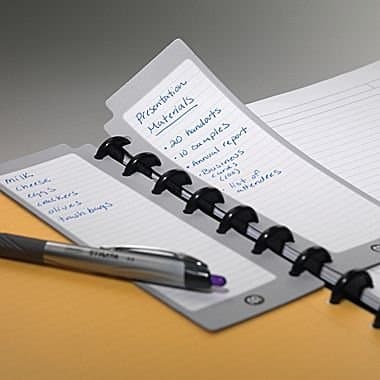 milk
cheese
eggs
crackers
olives
trash bags
Presentation
Materials
• 20 handouts
• 10 samples
• Annual report
• Business
cards
(100)
• list of
attendees